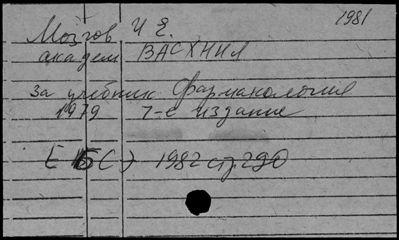 1981
Мозгов И Е.
академ ВАСХНИЛ
за учебник Фармакология
1979 7-е издание
(ЕБС) 1982 стр 290